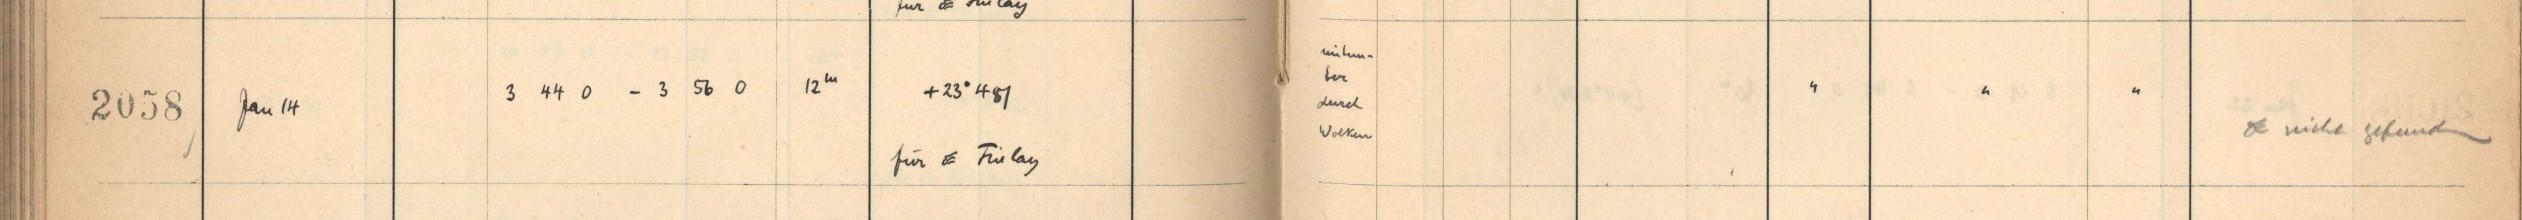 für ☄ Finlay
2058 Jan 14 3 44 0 - 3 56 0 12ᵐ +23° 481
für ☄ Finlay
mitun-
ter
durch
Wolken
" " "
☄ nicht gefunden